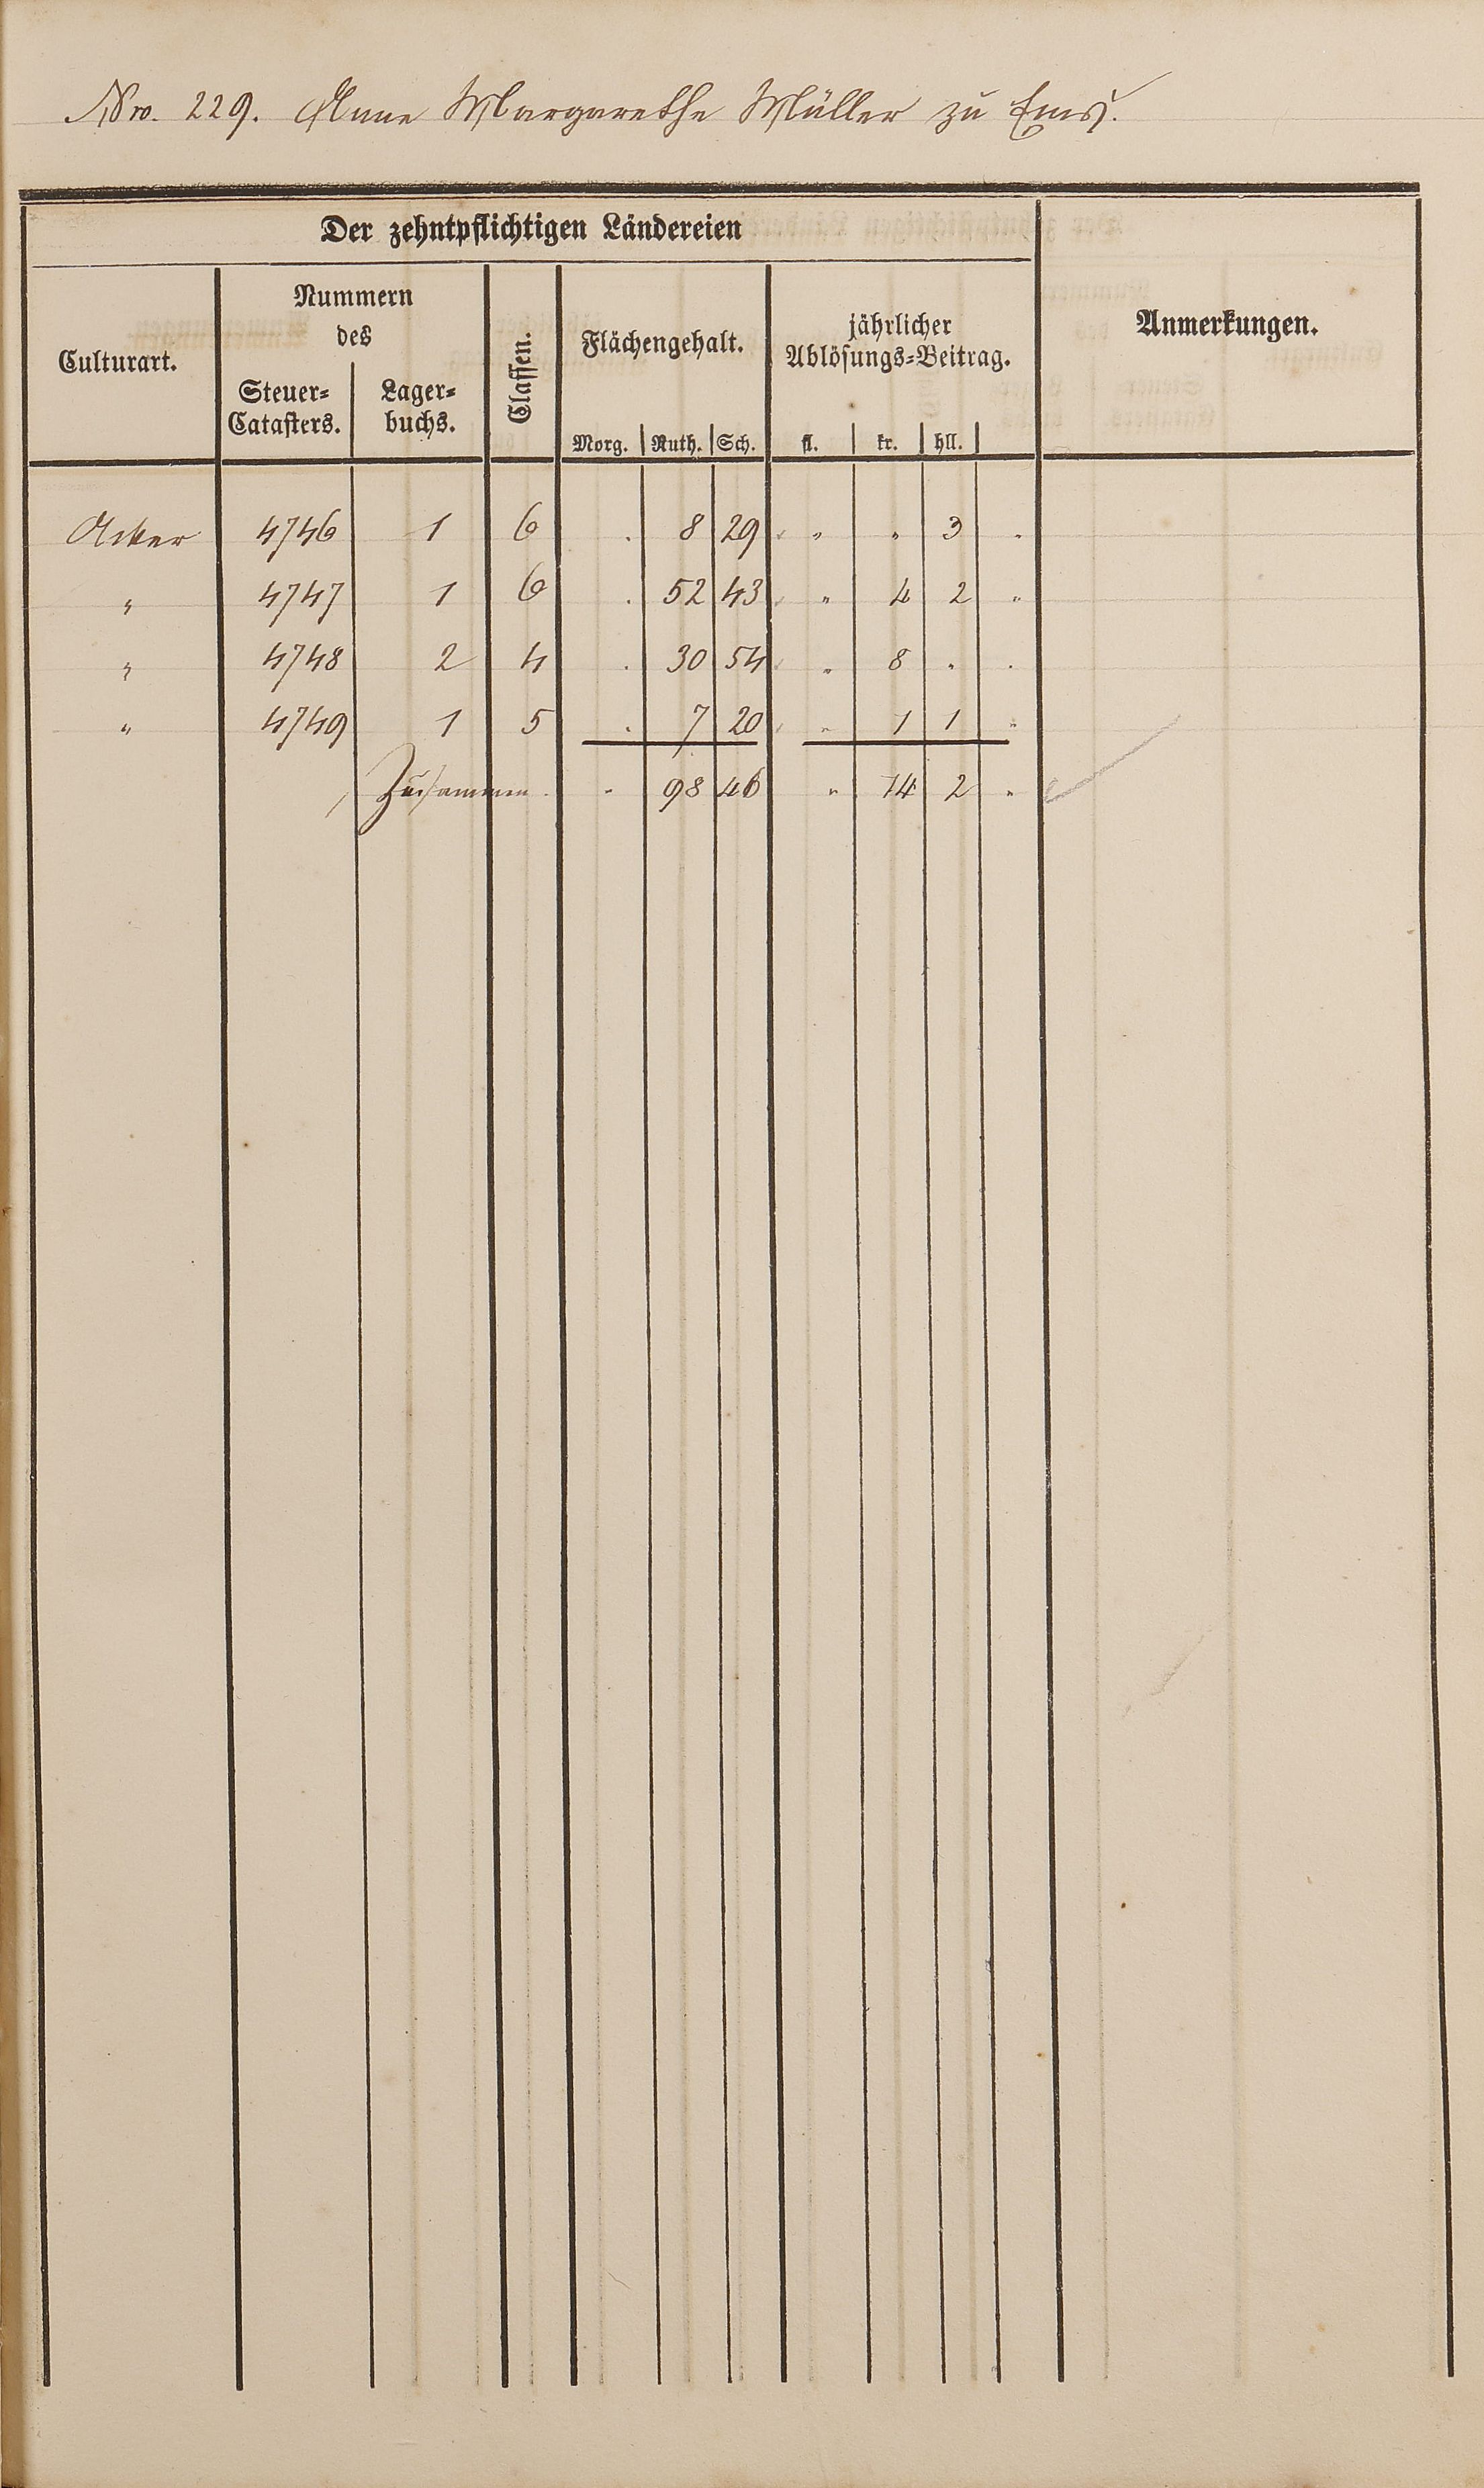 Nro. 229. Anne Margarethe Müller zu Ems.
Der zehntpflichtigen Ländereien
Culturart.
Nummern
des
Steuer-
Catasters.
Lager-
buchs.
Classen.
Flächengehalt.
Morg. Ruth. Sch.
jährlicher
Ablösungs-Beitrag.
fl. kr. hll.
Anmerkungen.
Acker 4746 1 6 . 8 29 " " 3 .
" 4747 1 6 . 52 43 " 4 2 "
" 4748 2 4 . 30 54 " 8 . .
" 4749 1 5 . 7 20 " 1 1 "
Zusammen . " 98 46 " 14 2 "